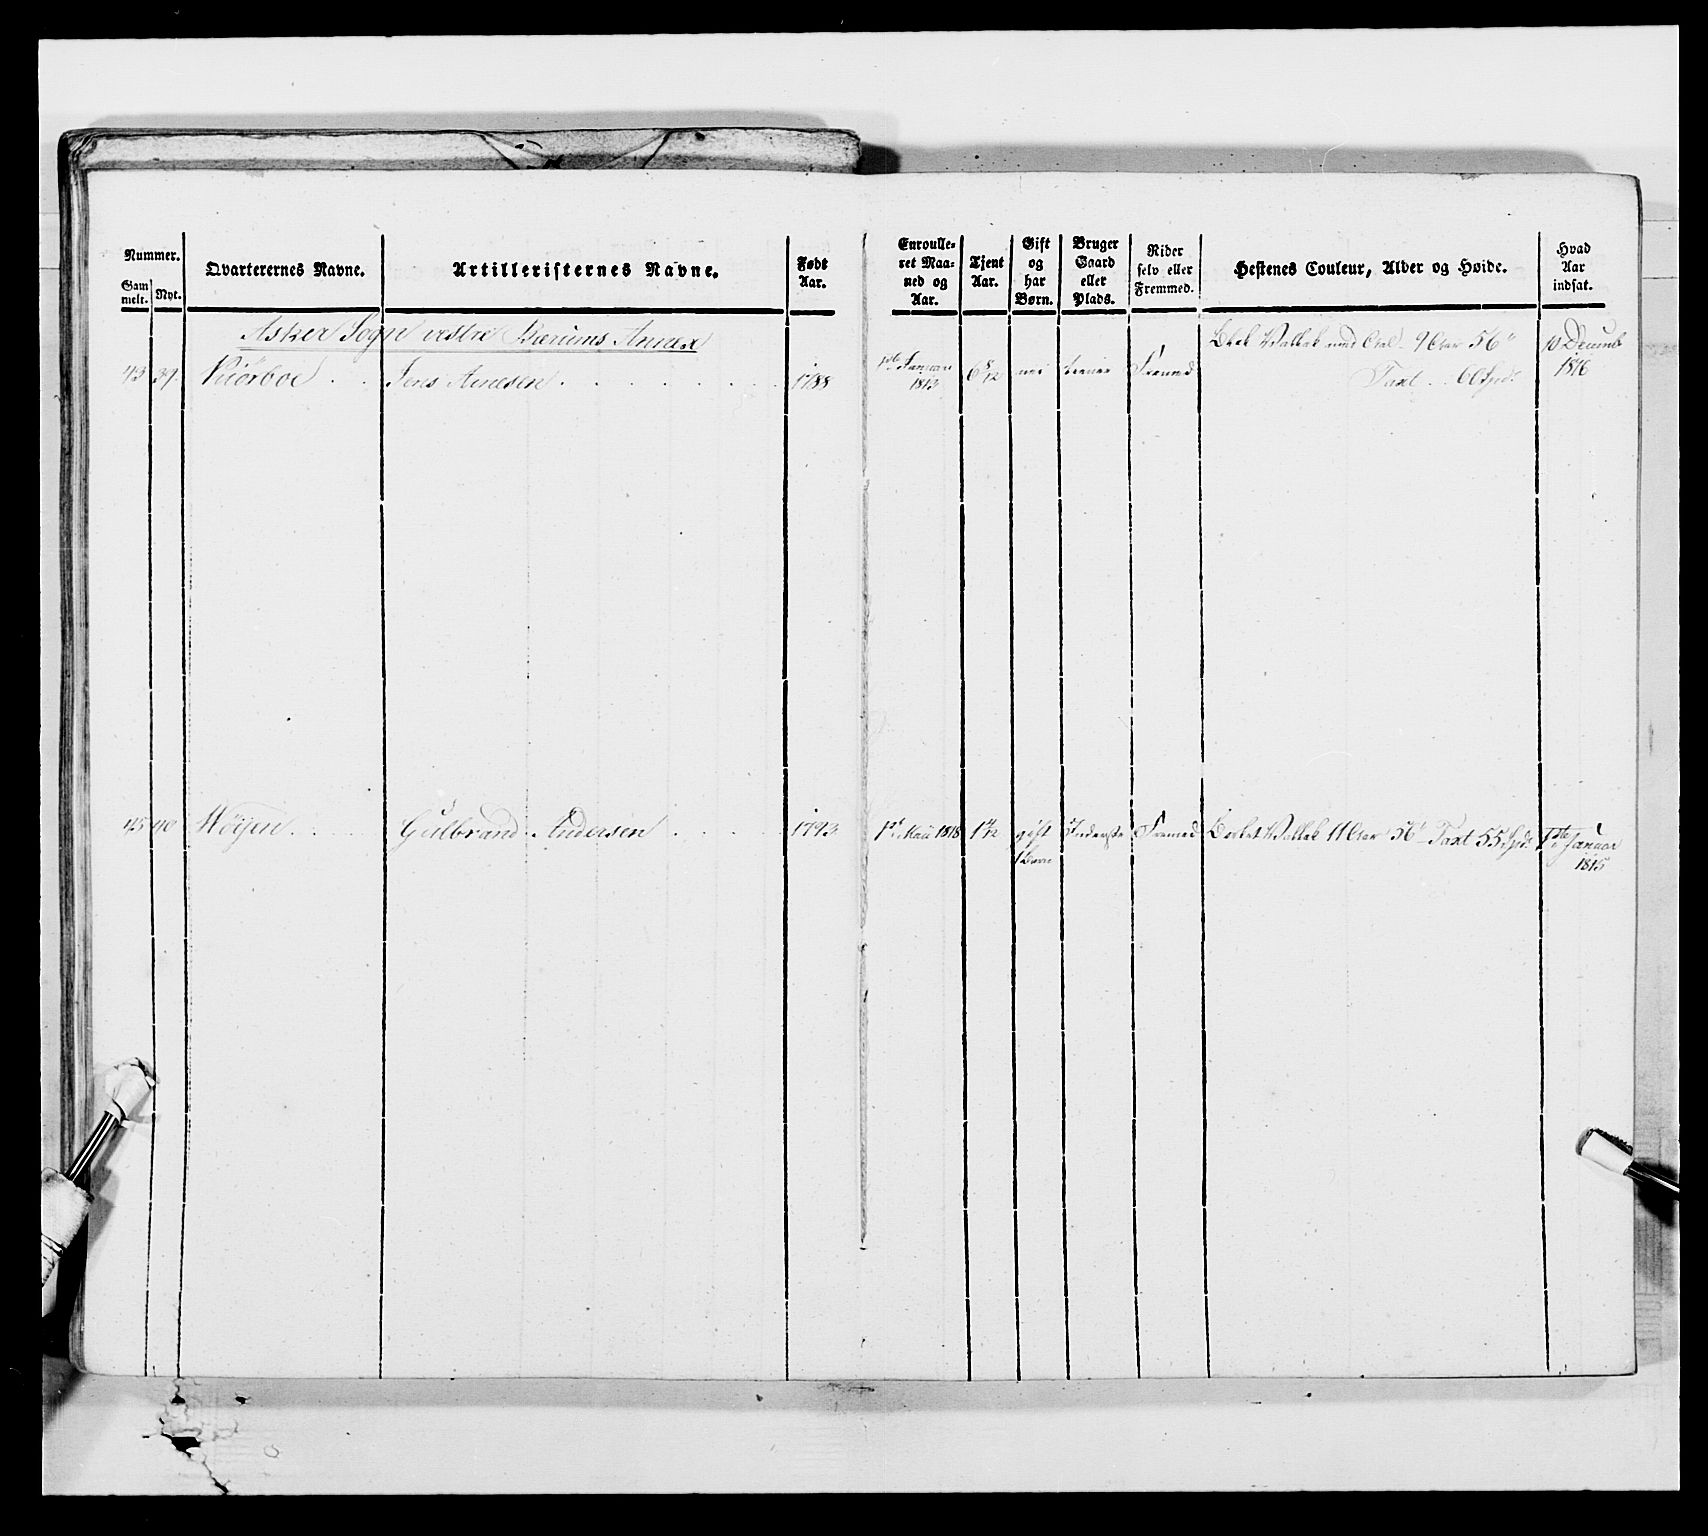 Nummer.
Gammelt. Nyt.
Qvarterernes Navne.
Artilleristernes Navne.
Født Aar.
Enroulleret Maaned og Aar.
Tjent Aar.
Gift og har Børn.
Bruger Gaard eller Plads.
Rider selv eller Fremmed.
Hestenes Couleur, Alder og Høide.
Hvad Aar indsat.
Asker Sogn vestre Bærums Annex
43 39. . . Jens Arnesen . . . . . . . . 1788 1ste Januari 1813 6 8/12 nei tiener Fremed Vallak med 9 Aar 56" Taxt . . 60 Spd. 10 Decemb 1816
45 40 Wøÿen. . . . Gulbrand Andersen . . . . 1793 1st Maii 1818 1 4/12 gift 1 Barn Inderste Fremed Vallak 11 Aar 56" Taxt 55 Spd. 1ste Januar 1815